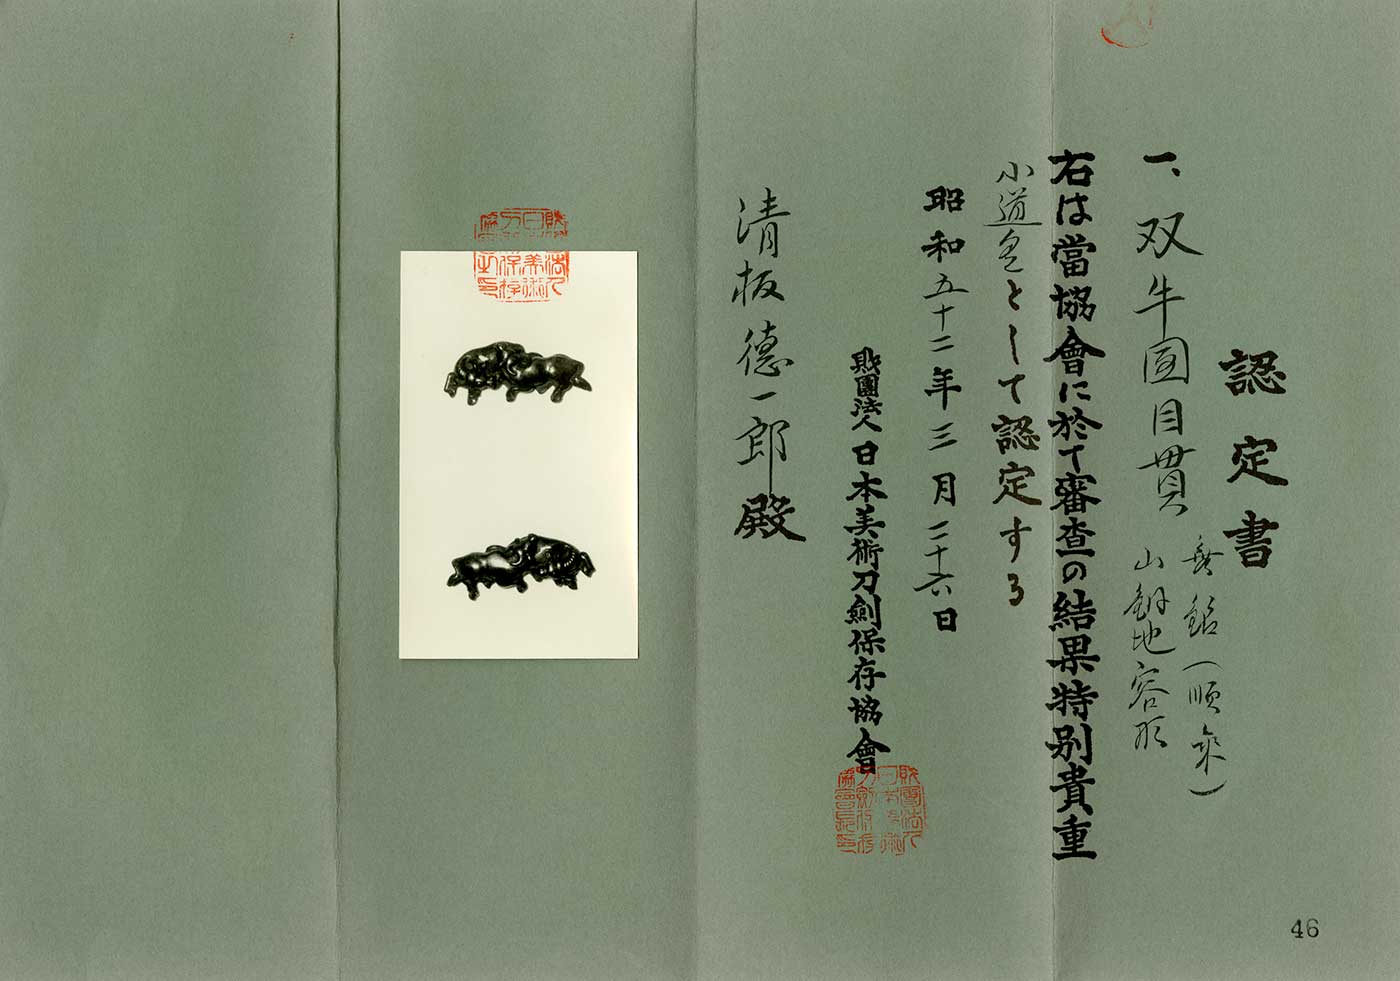 認定書
一、双牛図目貫
無銘(順乗)
山銅地容彫
右は當協會に於て審査の結果特別貴重
小道具として認定する
昭和五十二年三月二十六日
財團法人日本美術刀劍保存協會
清板德一郎殿
46